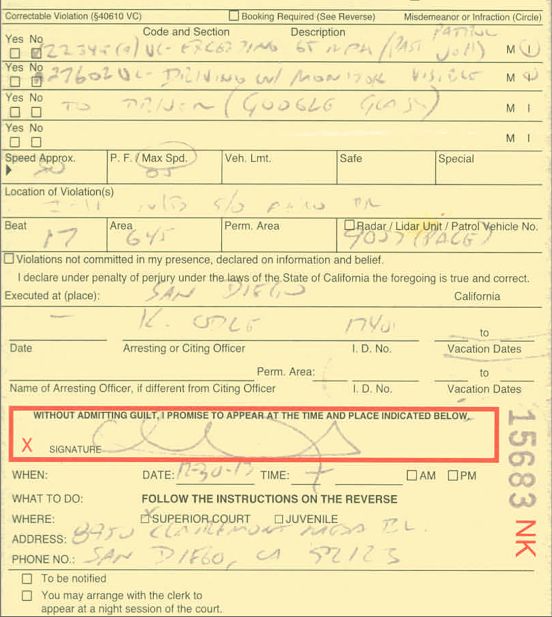 Correctable Violation (§40610 VC) Booking Required (See Reverse) Misdemeanor or Infraction (Circle)
Yes No Code and Section Description PATROL
22349(a) VC- EXCEEDING 65 MPH (PAST M I
Yes No
27602 VC- DRIVING W/ MONITOR VISIBLE M I
Yes No
TO DRIVER (GOOGLE GLASS) M I
Yes No
M I
Speed Approx. P. F. / Max Spd. Veh. Lmt. Safe Special
80 65
Location of Violation(s)
Beat Area Perm. Area Radar / Lidar Unit / Patrol Vehicle No.
17 645 (PACE)
Violations not committed in my presence, declared on information and belief.
I declare under penalty of perjury under the laws of the State of California the foregoing is true and correct.
Executed at (place): SAN DIEGO California
K. to
Date Arresting or Citing Officer I. D. No. Vacation Dates
Perm. Area: to
Name of Arresting Officer, if different from Citing Officer I. D. No. Vacation Dates
WITHOUT ADMITTING GUILT, I PROMISE TO APPEAR AT THE TIME AND PLACE INDICATED BELOW.
X SIGNATURE
WHEN: DATE: TIME: AM PM
WHAT TO DO: FOLLOW THE INSTRUCTIONS ON THE REVERSE
WHERE: SUPERIOR COURT JUVENILE
ADDRESS: 8950 CLAIREMONT MESA BL.
PHONE NO.: SAN DIEGO, CA 92123
To be notified
You may arrange with the clerk to
appear at a night session of the court.
15683 NK